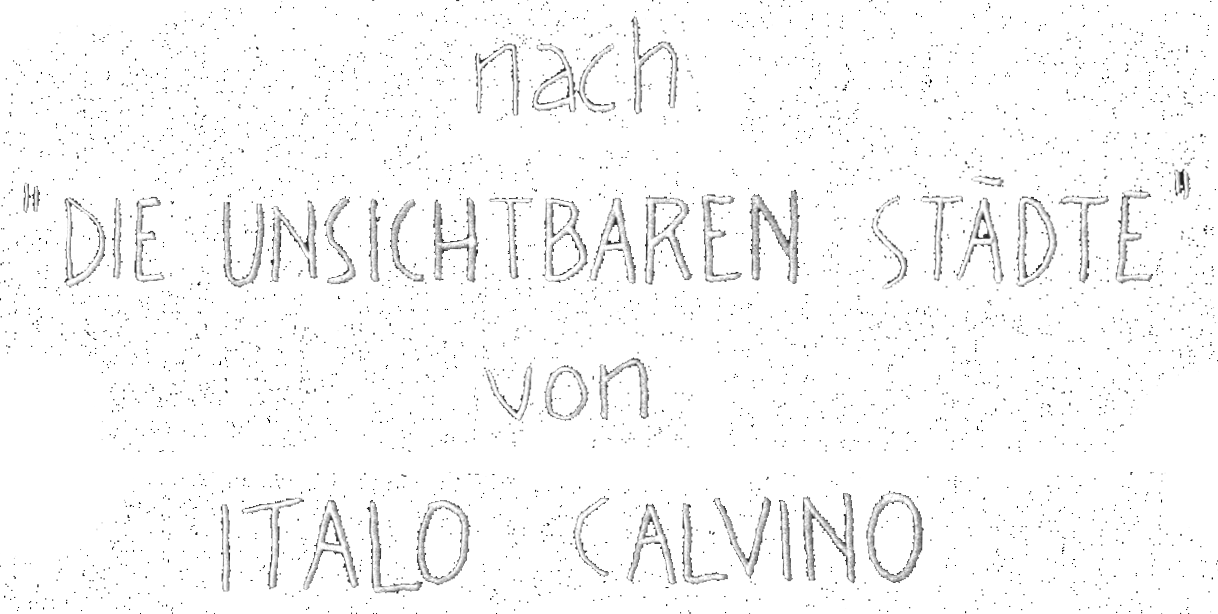 nach
"DIE UNSICHTBAREN STÄDTE"
von
ITALO CALVINO